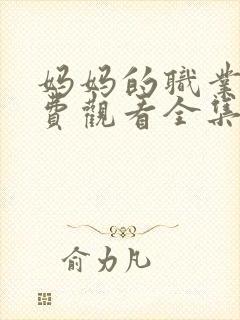 妈妈的職業
費觀看全集
俞力凡